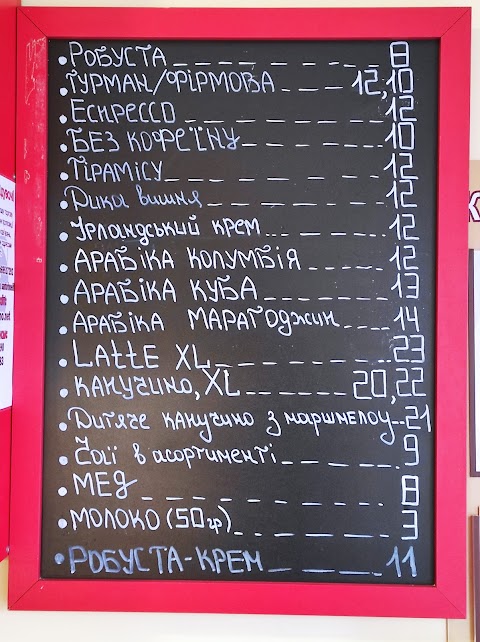 • РОБУСТА _ _ _ _ _ _ _ 8
• ГУРМАН/ФІРМОВА _ _ _ _ 12,10
• Еспрессо _ _ _ _ _ _ _ 12
• БЕЗ КОФЕЇНУ _ _ _ _ _ 10
• ТІРАМІСУ _ _ _ _ _ _ _ 12
• Дика вишня _ _ _ _ _ _ 12
• Ірландський крем... _ _ _ _ 12
• АРАБІКА КОЛУМБІЯ _ _ _ _ 12
• АРАБІКА КУБА _ _ _ _ _ 13
• АРАБІКА МАРАГОДЖИП _ _ _ 14
• LAttE XL _ _ _ _ _ _ _ 23
• капучино, XL _ _ _ _ _ 20,22
• Дитяче капучино з маршмелоу _ _ 21
• Чаї в асортименті _ _ _ _ 9
• МЕД _ _ _ _ _ _ _ _ 8
• МОЛОКО (50гр) _ _ _ _ _ 3
• РОБУСТА-КРЕМ _ _ _ _ _ 11